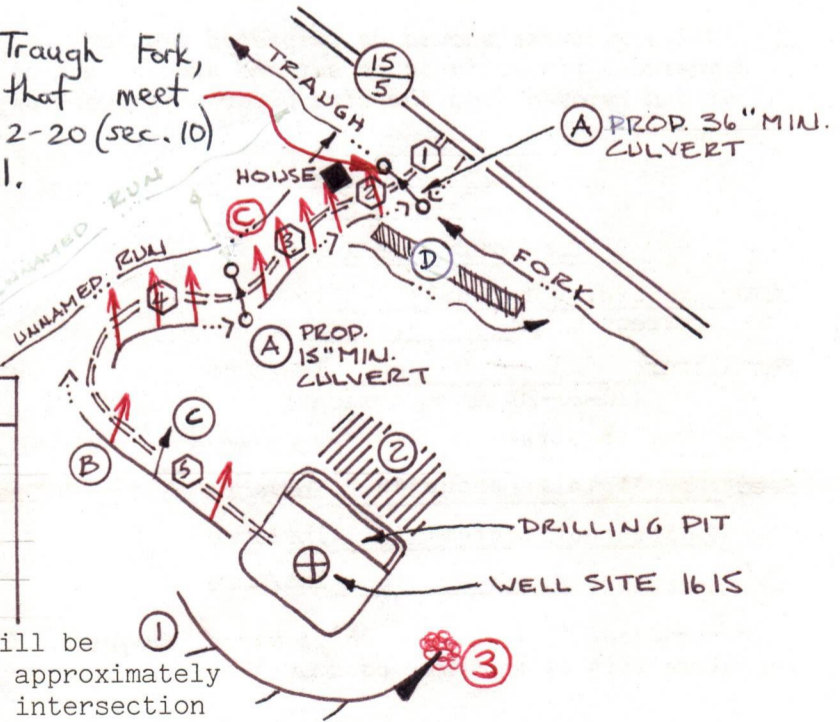 Traugh Fork,
that meet
2-20 (sec. 10)
1.
TRAUGH
15
5
A PROP. 36" MIN.
CULVERT
1
HOUSE
2
C
C
3
UNNAMED RUN
UNNAMED RUN
D
FORK
4
A PROP.
15" MIN.
CULVERT
C
B
5
2
DRILLING PIT
WELL SITE 1615
1
3
ill be
approximately
intersection